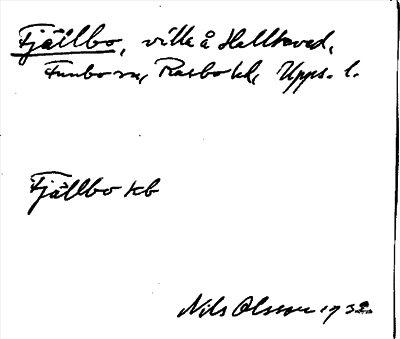 Fjällbo, villa å Hallkved,
Funbo sn, Rasbo hd, Upps. l.
Fjällbo kb
Nils Olsson 19